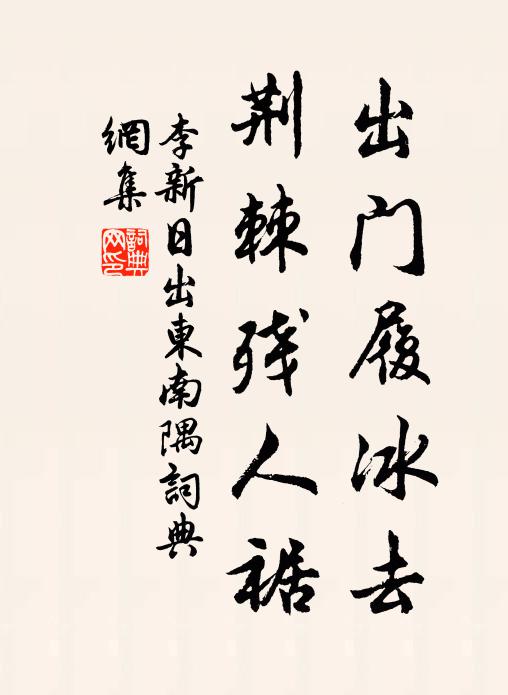 出门履冰去
荆棘残人裾
李新日出東南隅詞典
網集
詞典
网印